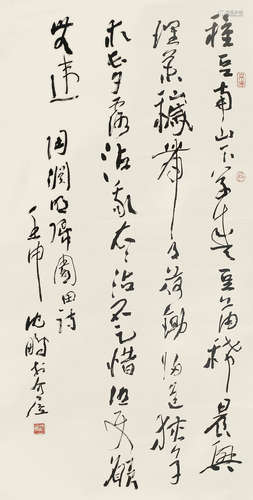 種豆南山下草盛豆苗稀晨興
理荒穢帶月荷鋤歸道狹草
木長夕露沾我衣々沾不足惜但使願
無違
陶淵明歸園田詩
壬申沈鵬於介居